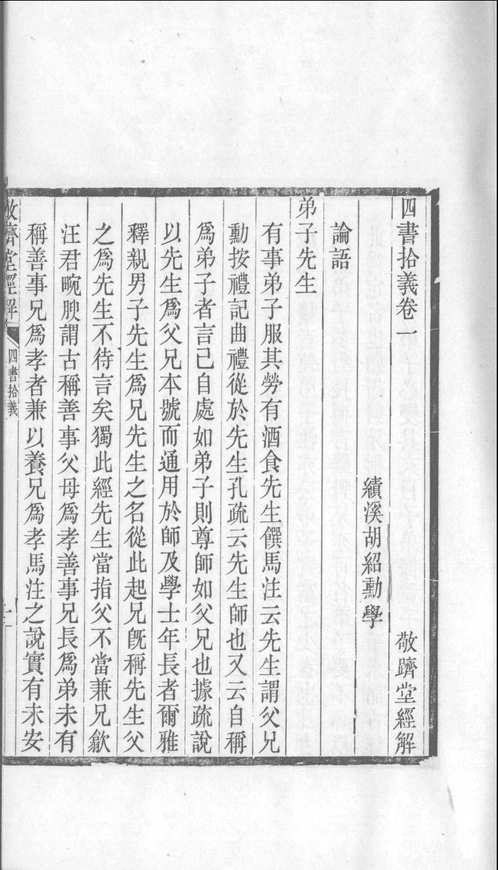 四書拾義卷一
敬躋堂經解
績溪胡紹勳學
論語
弟子先生
有事弟子服其勞有酒食先生饌馬注云先生謂父兄
勳按禮記曲禮從於先生孔疏云先生師也又云自稱
爲弟子者言己自處如弟子則尊師如父兄也據疏說
以先生爲父兄本號而通用於師及學士年長者爾雅
釋親男子先生爲兄先生之名從此起兄旣稱先生父
之爲先生不待言矣獨此經先生當指父不當兼兄歙
汪君畹腴謂古稱善事父母爲孝善事兄長爲弟未有
稱善事兄爲孝者兼以養兄爲孝馬注之說實有未安
躋堂經解
四書拾義